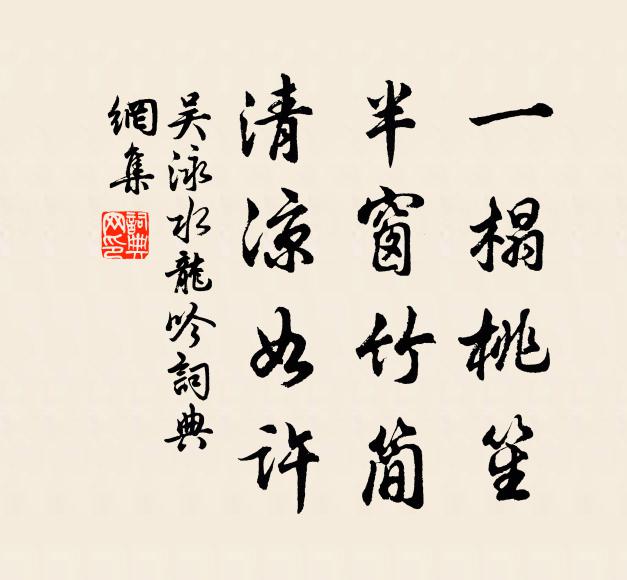 一榻桃笙
半窗竹简
清凉如许
吴泳水龍吟詞典
網集
詞典網印